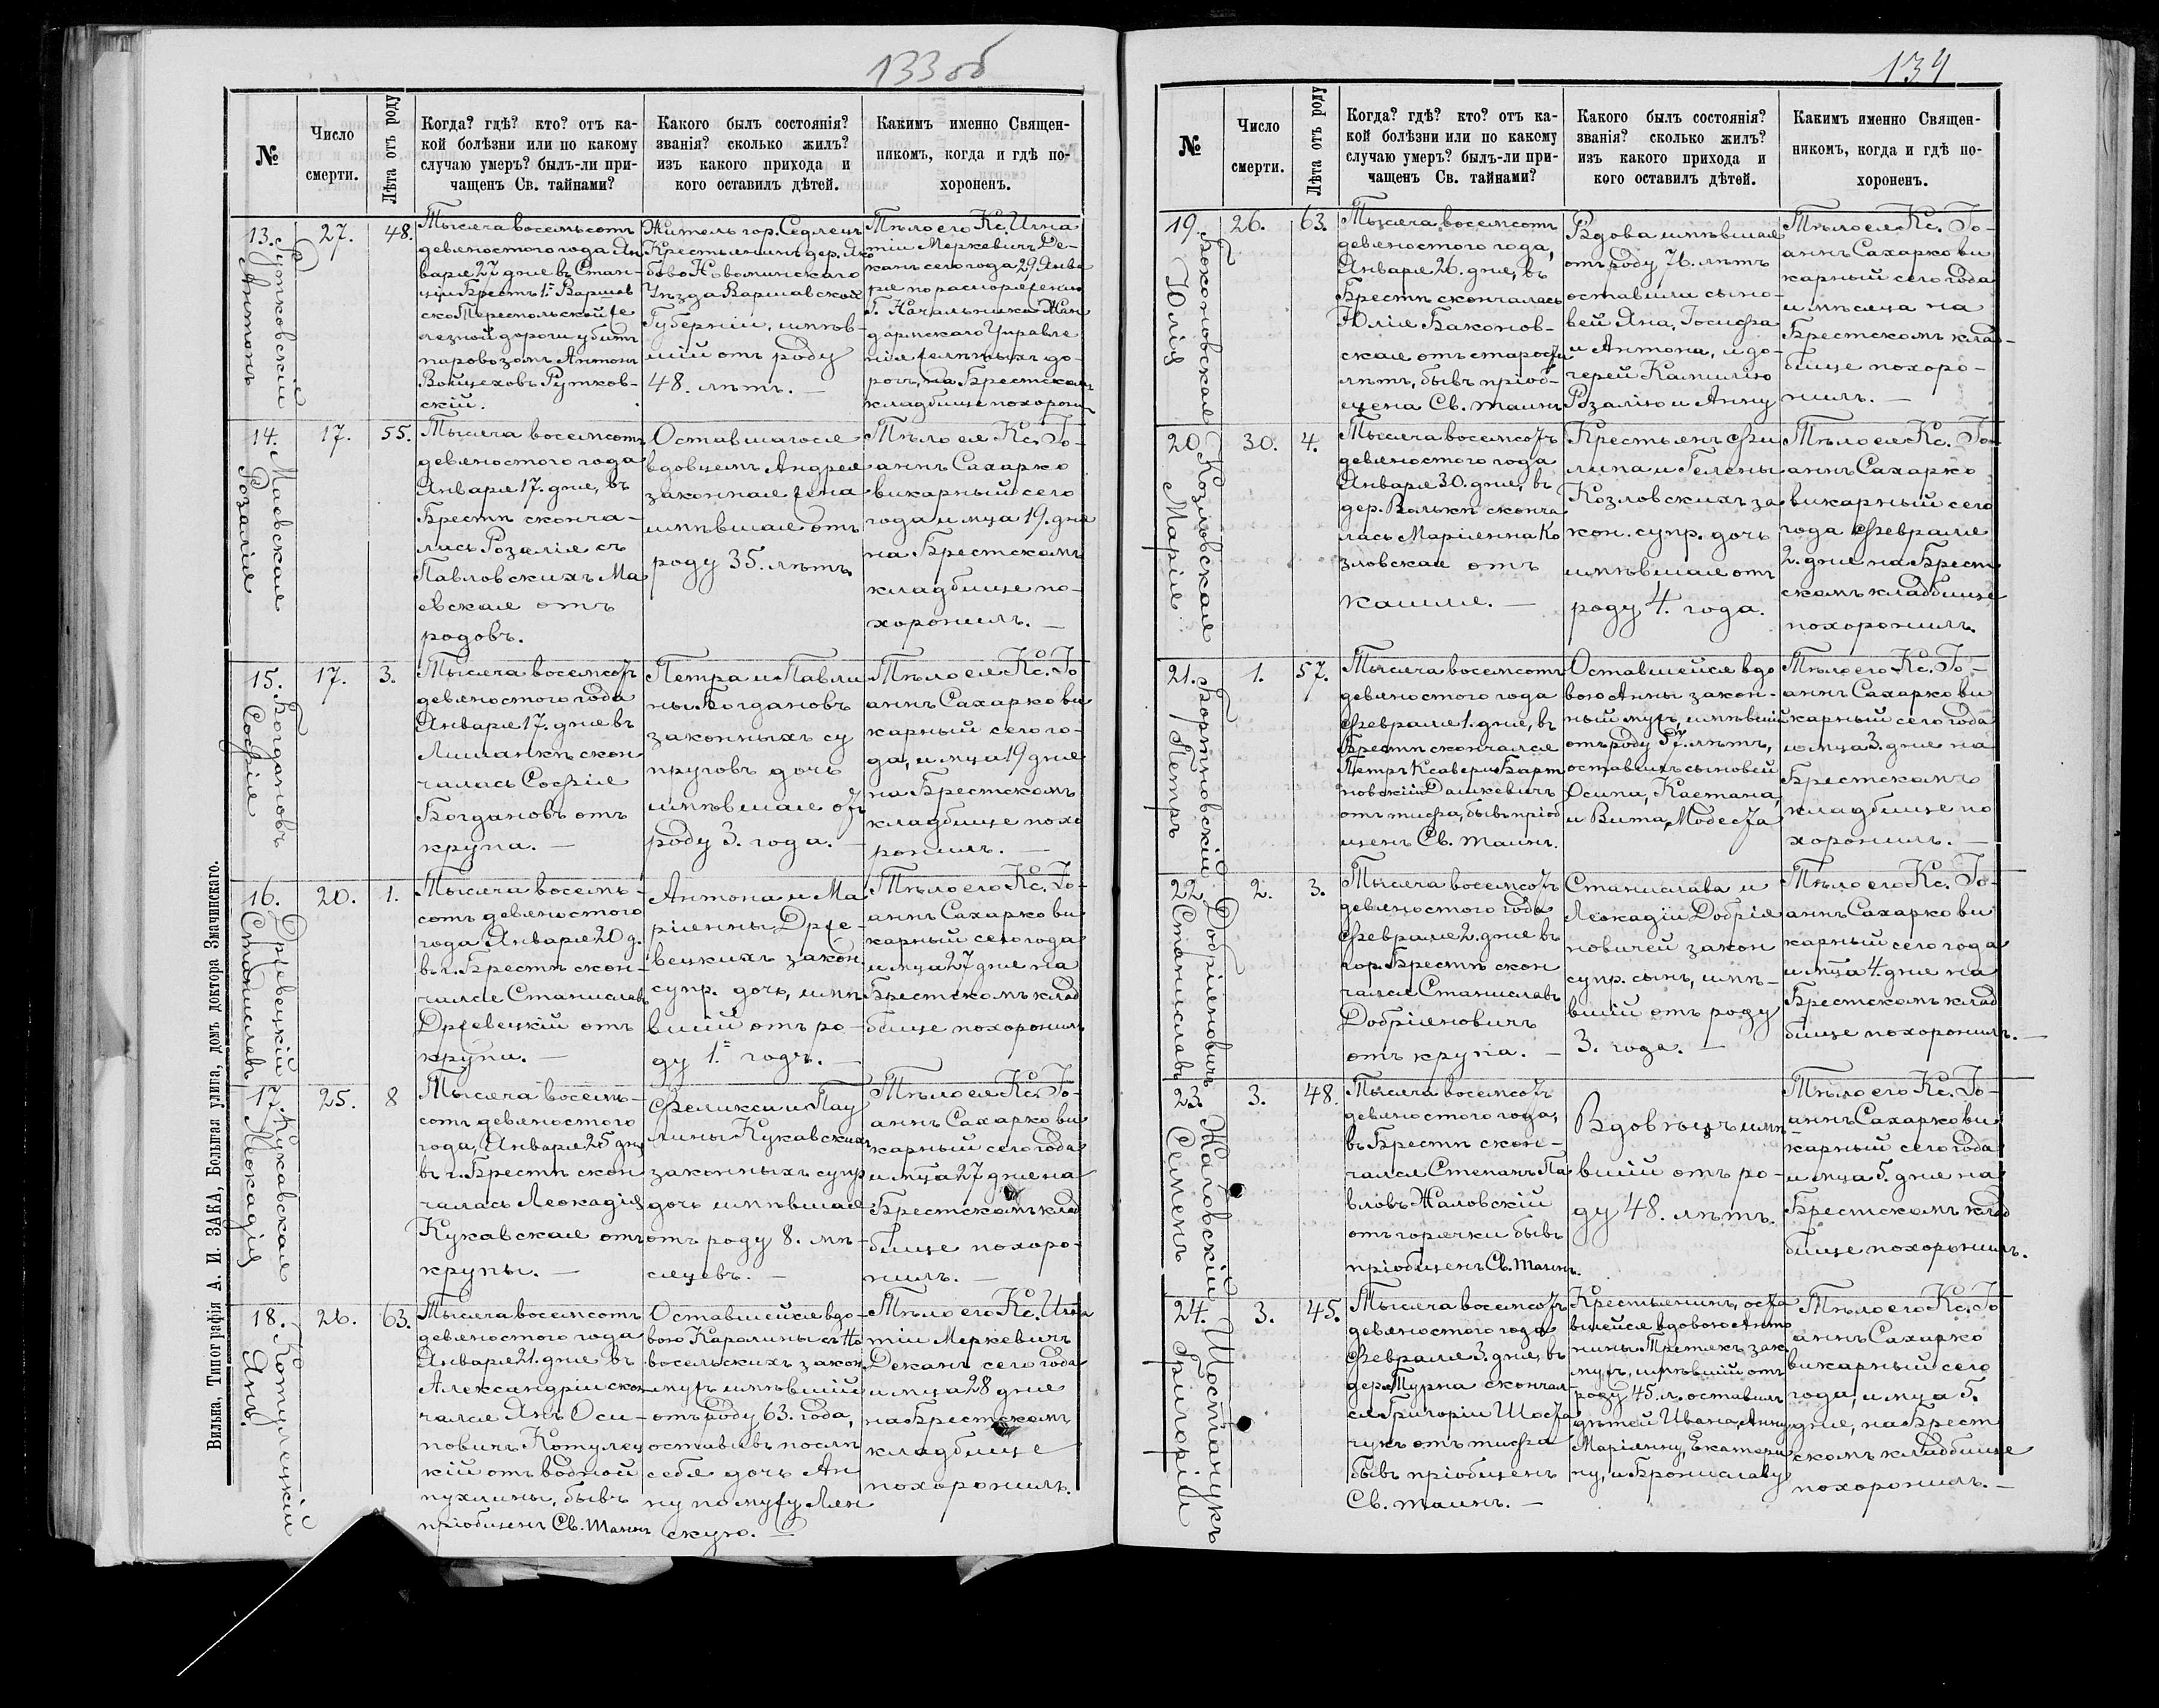 133об
№
Число
смерти.
Лѣта отъ роду
Когда? гдѣ? кто? отъ ка-
кой болѣзни или по какому
случаю умеръ? былъ-ли при-
чащенъ Св. тайнами?
Какого былъ состоянія?
званія? сколько жилъ?
изъ какого прихода и
кого оставилъ дѣтей.
Какимъ именно Священ-
никомъ, когда и гдѣ по-
хороненъ.
13.
Рутковскій
Антонъ
27.
48.
Тысяча восемьсотъ
девяностого года Ян
варя 27 дня въ Стан-
ціи Брестъ 1й Варшав
ско Тереспольской же
лезной дороги убитъ
паровозомъ Антонъ
Войцеховъ Рутков-
скій.
Житель гор. Седлецъ
Крестьянинъ дер. Яко
бово Новоминскаго
Уѣзда Варшавской
Губерніи, имѣв-
шій отъ роду
48. лѣтъ. —
Тѣло его Кс. Игна
тіи Меркевичъ Де-
канъ сего года 29. Янва
ря по распоряженію
Г. Начальника Жан
дармскаго Управле
нія желѣзныхъ до-
рогъ, на Брестскомъ
кладбище похоронилъ
14.
Маевская
Розалія
17.
55.
Тысяча восемсотъ
девяностого года
Января 17. дня, въ
Брестѣ сконча-
лась Розалія съ
Павловскихъ Ма
евская отъ
родовъ.
Оставшагося
вдовцемъ Андрея
законная жена
имѣвшая отъ
роду 35. лѣтъ
Тѣло ея Кс. Іо-
аннъ Сахарко
викарный сего
года и мца 19. дня
на Брестскомъ
кладбище по-
хоронилъ. —
15.
Богдановъ
Софія
17.
3.
Тысяча восемсотъ
девяностого года
Января 17. дня въ
Лиманкѣ скон
чалась Софія
Богдановъ отъ
крупа. —
Петра и Павли
ны Богдановъ
законныхъ су
пруговъ дочь
имѣвшая отъ
роду 3. года. —
Тѣло ея Кс. Іо
аннъ Сахарко ви
карный сего го-
да, и мца 19 дня
на Брестскомъ
кладбище похо
ронилъ. —
16.
Држевецкій
Станиславъ
20.
1.
Тысяча восемь-
сотъ девяностого
года Января 20 д.
въ г. Брестѣ скон-
чался Станиславъ
Држевецкій отъ
крупи. —
Антона и Ма
ріянны Држе-
вецкихъ закон.
супр. дочь, имѣ
вшій отъ ро-
ду 1.й годъ. —
Тѣло его Кс. Іо-
аннъ Сахарко ви
карный сего года
и мца 27 дня на
Брестскомъ клад
бище похоронилъ
17.
Кукавская
Леокадія
25.
8
Тысяча восемь-
сотъ девяностого
года, Января 25 дня
въ г. Брестѣ скон
чалась Леокадія
Кукавская отъ
крупы. —
Феликса и Пау
лины Кукавскихъ
законныхъ супр
дочь имѣвшая
отъ роду 8. мѣ-
сяцевъ. —
Тѣло ея Кс. Іо-
аннъ Сахарко ви
карный сего года
и мца 27 дня на
Брестскомъ клад
бище похоро-
нилъ. —
18.
Котулецкій
Янъ.
26.
63.
Тысяча восемсотъ
девяностого года
Января 21. дня въ
Александріи скон
чался Янъ Оси-
повичъ Котулец
кій отъ водной
пухлины, бывъ
пріобщенъ Св. Таинъ
Оставшейся вдо-
вою Каролины съ Но
восельскихъ закон
мужъ имѣвшій
отъ роду 63. года,
оставивъ послѣ
себя дочь Ан
ну по мужу Лян
скую. —
Тѣло его Кс. Игна
тіи Меркевичъ
Деканъ сего года
и мца 28 дня
на Брестскомъ
кладбище
похоронилъ.
Вильна, Типографія А. И. ЗАКА, Большая улица, домъ доктора Змачинскаго.
134
№
Число
смерти.
Лѣта отъ роду
Когда? гдѣ? кто? отъ ка-
кой болѣзни или по какому
случаю умеръ? былъ-ли при-
чащенъ Св. тайнами?
Какого былъ состоянія?
званія? сколько жилъ?
изъ какого прихода и
кого оставилъ дѣтей.
Какимъ именно Священ-
никомъ, когда и гдѣ по-
хороненъ.
19.
Боконовская
Юлія
26.
63.
Тысяча восемсотъ
девяностого года,
Января 26. дня, въ
Брестѣ скончалась
Юлія Баконов-
ская отъ старости
лѣтъ, бывъ пріоб-
щена Св. таинъ
Вдова имѣвшая
отъ роду 76. лѣтъ
оставила сыно-
вей Яна, Іосифа
и Антона, и до-
черей Камилію
Розалію и Анну
Тѣло ея Кс. Іо-
аннъ Сахарко ви
карный сего года
и мѣсяца на
Брестскомъ клад-
бище похоро-
нилъ. —
20.
Козловская
Марія
30.
4.
Тысяча восемсотъ
девяностого года
Января 30. дня, въ
дер. Волькѣ сконча
лась Маріянна Ко
зловская отъ
кашля. —
Крестьянъ Фи
липа и Гелены
Козловскихъ за
кон. супр. дочь
имѣвшая отъ
роду 4. года.
Тѣло ея Кс. Іо-
аннъ Сахарко
викарный сего
года Февраля
2. дня на Брест
скомъ кладбище
похоронилъ.
21.
Бортновскій
Петръ
1.
57.
Тысяча восемсотъ
девяностого года
Февраля 1. дня, въ
Брестѣ скончался
Петръ Ксавери Барт
новскій Дашкевичъ
отъ тифа, бывъ пріоб
щенъ Св. таинъ.
Оставшейся вдо
вою Анны закон-
ный мужъ, имѣвшій
отъ роду 57. лѣтъ,
оставилъ сыновей
Осипа, Каетана,
и Вита, Модеста
Тѣло его Кс. Іо-
аннъ Сахарко ви
карный сего года
и мца 3. дня на
Брестскомъ
кладбище по
хоронилъ. —
22.
Добріяновичъ
Станиславъ
2.
3.
Тысяча восемсотъ
девяностого года
Февраля 2. дня въ
гор. Брестѣ скон
чался Станиславъ
Добріяновичъ
отъ крупа. —
Станислава и
Леокадіи Добрія
новичей закон
супр. сынъ, имѣ-
вшій отъ роду
3. года. —
Тѣло его Кс. Іо-
аннъ Сахарко ви
карный сего года
и мца 4. дня на
Брестскомъ клад
бище похоронилъ. —
23.
Жаловскій
Семенъ
3.
48.
Тысяча восемсотъ
девяностого года,
въ Брестѣ скон-
чался Степанъ Па
вловъ Жаловскій
отъ горячки бывъ
пріобщенъ Св. Таинъ.
Вдовецъ имѣ
вшій отъ ро-
ду 48. лѣтъ.
Тѣло его Кс. Іо-
аннъ Сахарко ви
карный сего года
и мца 5. дня на
Брестскомъ клад
бище похоронилъ.
24.
Шостачукъ
Григорій
3.
45.
Тысяча восемсотъ
девяностого года
Февраля 3. дня, въ
дер. Турна скончал-
ся Григоріи Шоста
чукъ отъ тифа
бывъ пріобщенъ
Св. таинъ. —
Крестьянинъ, оста
вшейся вдовою Анто
нины Третякъ зак.
мужъ, имѣвшій отъ
роду 45. л. оставилъ
дѣтей Ивана, Анну
Маріянну, Екатери
ну, и Брониславу
Тѣло его Кс. Іо
аннъ Сахарко
викарный сего
года, и мца 5.
дня, на Брест
скомъ кладбище
похоронилъ. —